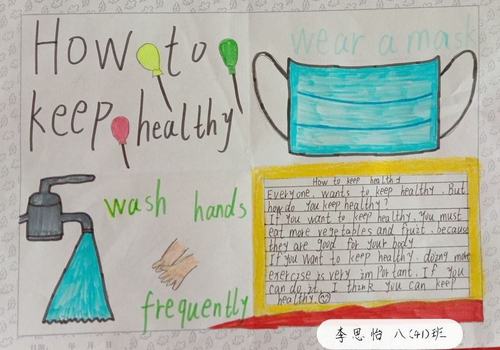 How to
keep healthy
wear a mask
wash hands
frequently
How to keep health-y
Everyone wants to keep healthy. But
how do you keep healthy?
If you want to keep healthy, you must
eat more vegetables and fruit, because
they are good for your body
If you want to keep healthy, doing more
exercise is very im Portant. If you
can do it, I think you can keep
healthy.
李思怡 八(41)班